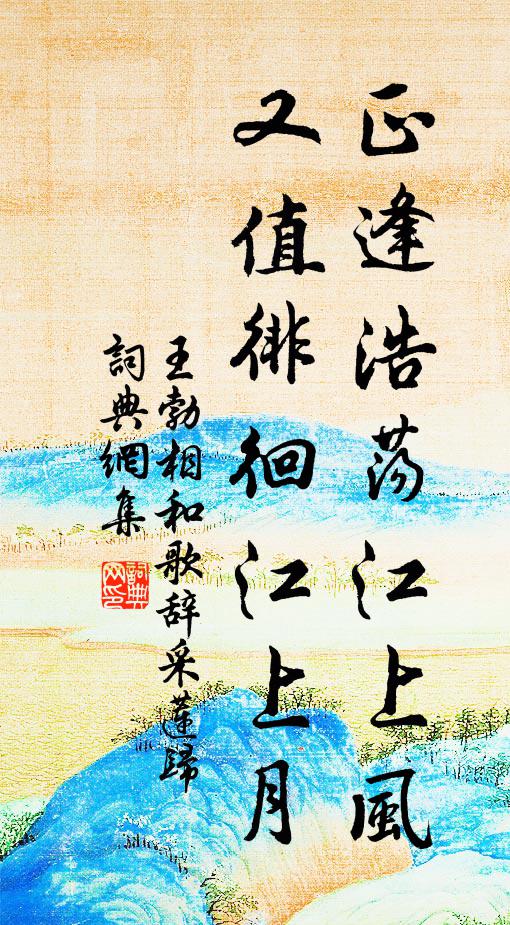 正逢浩蕩江上風
又值徘徊江上月
王勃相和歌辞采蓮歸
詞典網集
詞典
网印